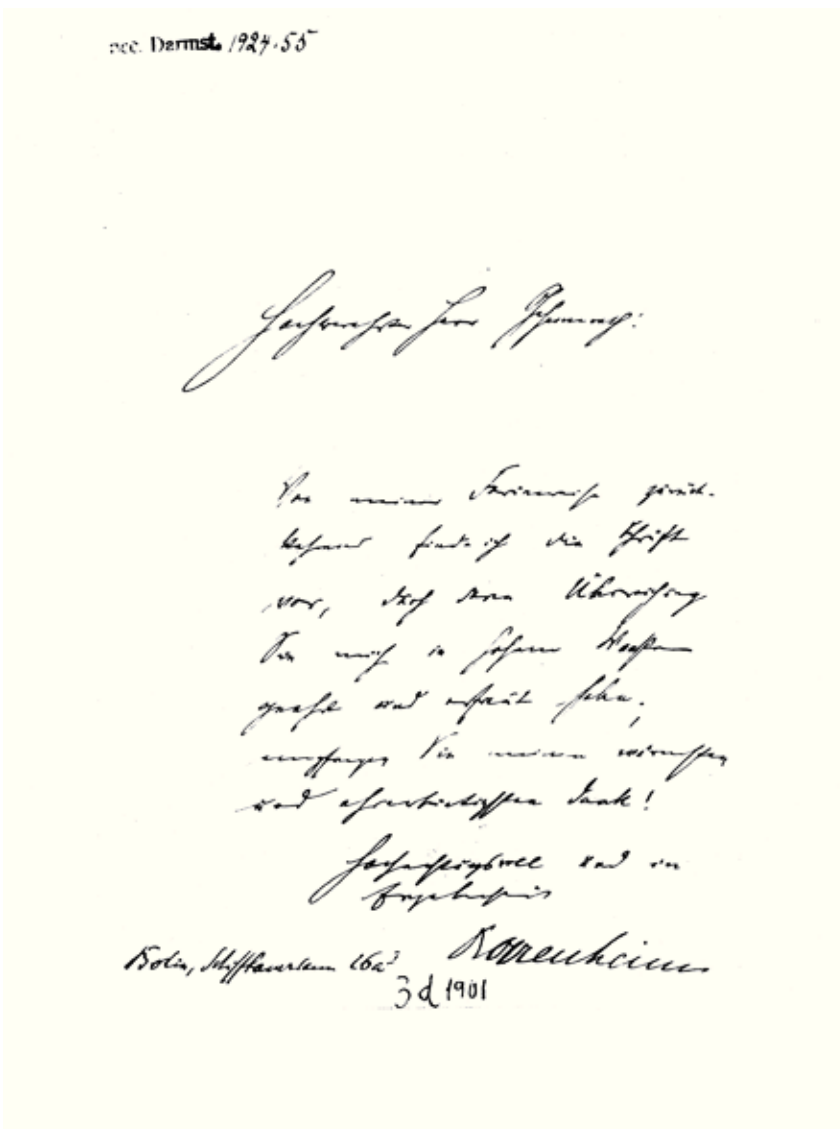 acc. Darmst. 1924.55
Hochverehrter Herr
Von meiner Ferienreise zurück-
kehrend finde ich die Schrift
vor, durch deren Überreichung
Sie mich in hohem Maaße
geehrt und erfreut haben.
empfangen Sie meinen wärmsten
und ehrerbietigsten Dank!
Hochachtungsvoll und in
Ergebenheit
Berlin, Schiffbauerdamm 16a
3d 1901